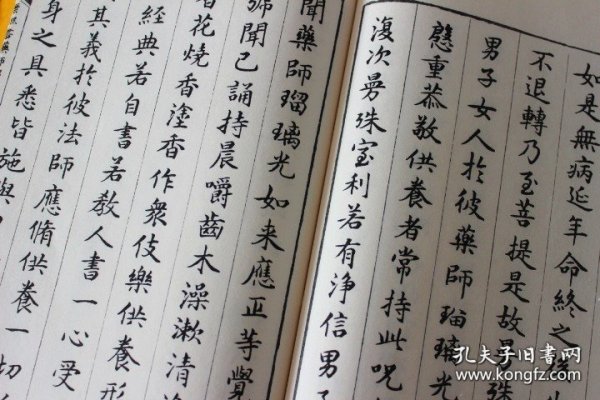 如是無病延年命終之
不退轉乃至菩提是故
男子女人於彼藥師瑠璃光
慇重恭敬供養者常持此呪
復次曼殊室利若有淨信男
聞藥師瑠璃光如来應正等覺
號聞已誦持晨嚼齒木澡漱清
香花燒香塗香作衆伎樂供養形
經典若自書若教人書一心受
其義於彼法師應脩供養一切
身之具悉皆施與
孔夫子旧书网
www.kongfz.com